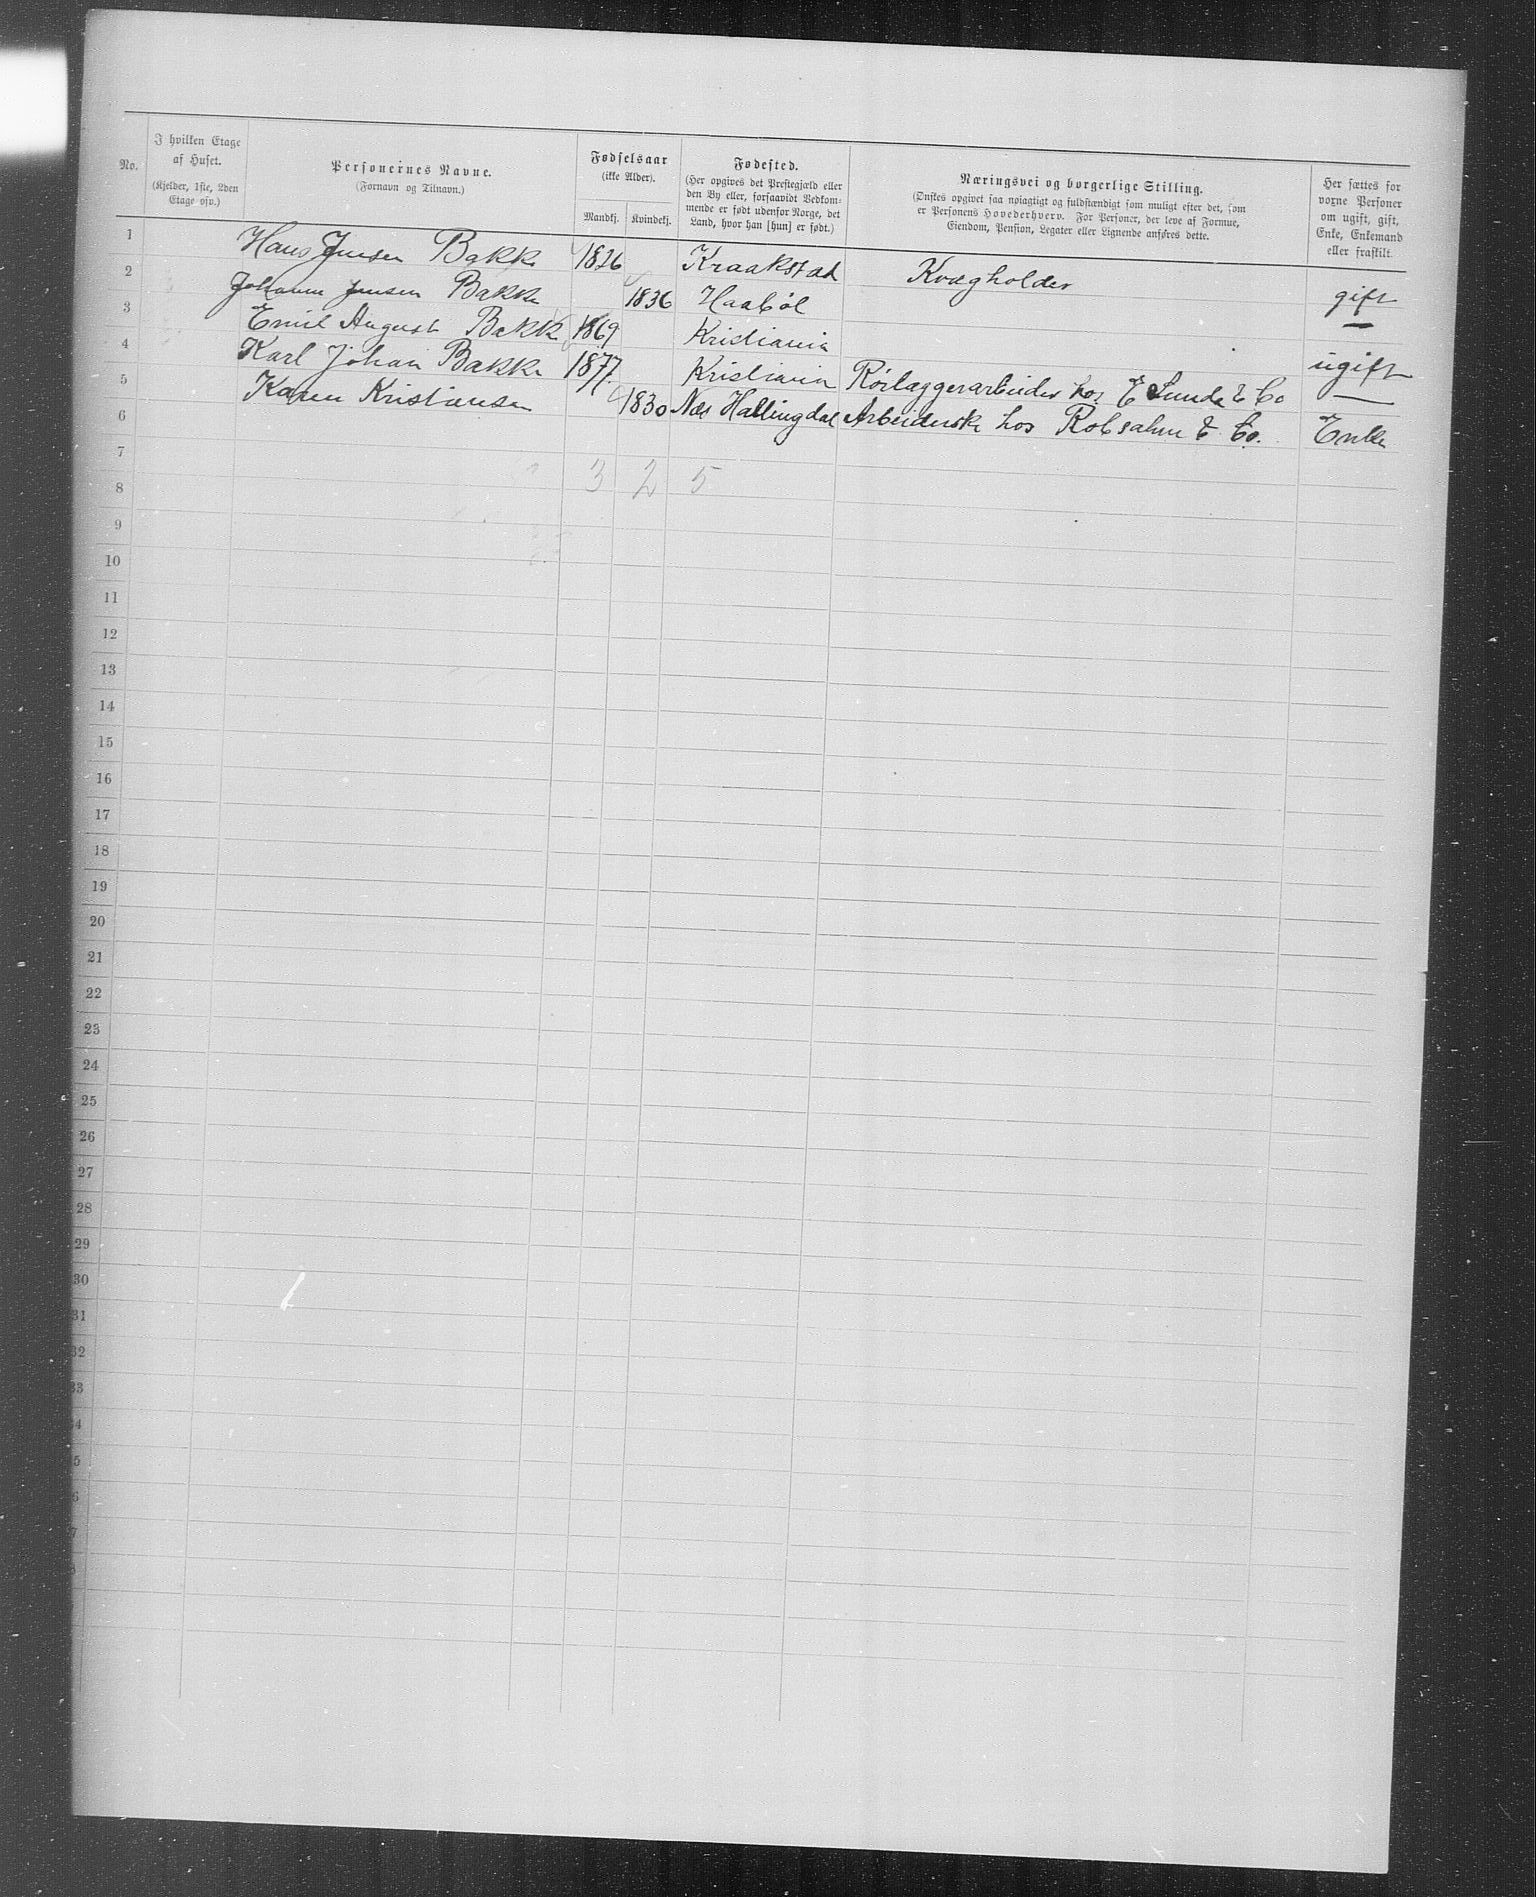 No.
I hvilken Etage
af Huset.
(Kjelder, 1ste, 2den
Etage osv.)
Personernes Navne.
(Fornavn og Tilnavn.)
Fødselsaar
(ikke Alder).
Mandkj.
Kvindekj.
Fødested.
(Her opgives det Prestegjæld eller
den By eller, forsaavidt Vedkom-
mende er født udenfor Norge, det
Land, hvor han [hun] er født.)
Næringsvei og borgerlige Stilling.
(Ønskes opgivet saa nøiagtigt og fuldstændigt som muligt efter det, som
er Personens Hovederhverv. For Personer, der leve af Formue,
Eiendom, Pension, Legater eller Lignende anføres dette.
Her sættes for
voxne Personer
om ugift, gift,
Enke, Enkemand
eller fraskilt.
1 Hans Jensen Bakke 1826 Kraakstad Kvægholder gift
2 Johanne Jensen Bakke 1836 Haabøl —
3 Emil August Bakke 1869 Kristiania ugift
4 Karl Johan Bakke 1877 Kristiania Rørlæggerarbeider hos E Sunde & Co —
5 Karen Kristiansen 1830 Næs Hallingdal Arbeiderske hos Robsahm & Co. Enke
6
7
8 3 2 5
9
10
11
12
13
14
15
16
17
18
19
20
21
22
23
24
25
26
27
28
29
30
31
32
33
4
5
6
7